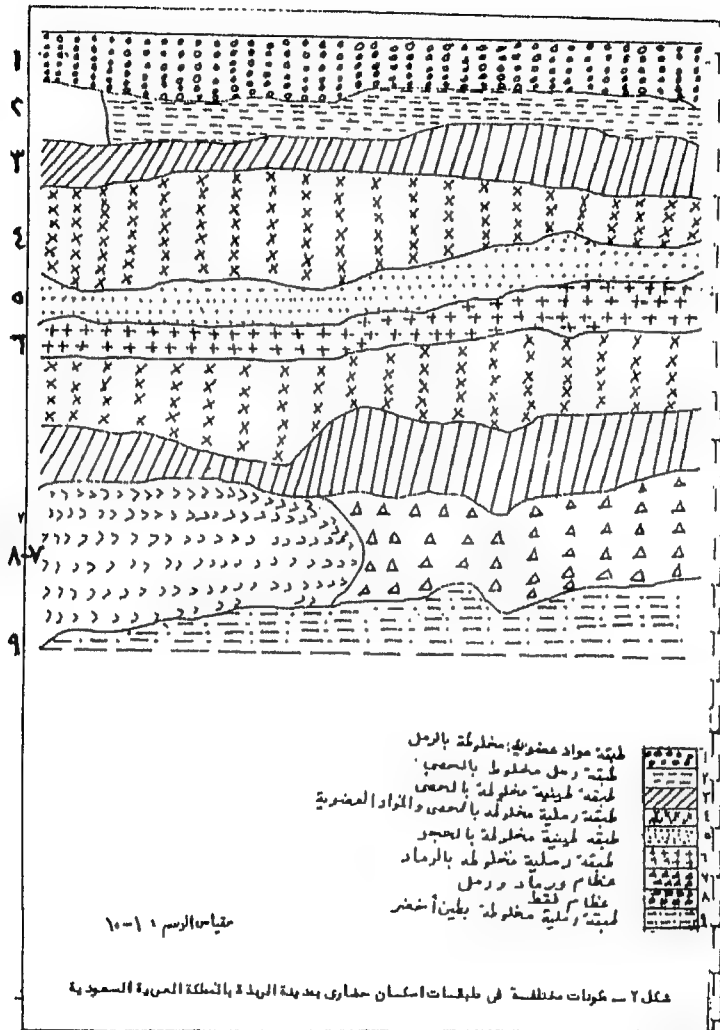 ١
٢
٣
٤
٥
٦
٨-٧
٩
١ طبقة مواد عضوية مخلوطة بالرمل
٢ طبقة رمل مخلوط بالحصى
٣ طبقة طينية مخلوطة بالحصى
٤ طبقة رملية مخلوطة بالحصى والمواد العضوية
٥ طبقة طينية مخلوطة بالحجر
٦ طبقة رملية مخلوطة بالرماد
٧ عظام ورماد ورمل
٨ عظام فقط
٩ طبقة رملية مخلوطة بطين أخضر
مقياس الرسم ١-١٠
شكل ٢ - مكونات مختلفة في طبقات اسكان حضارى بمدينة الربذة بالمملكة العربية السعودية